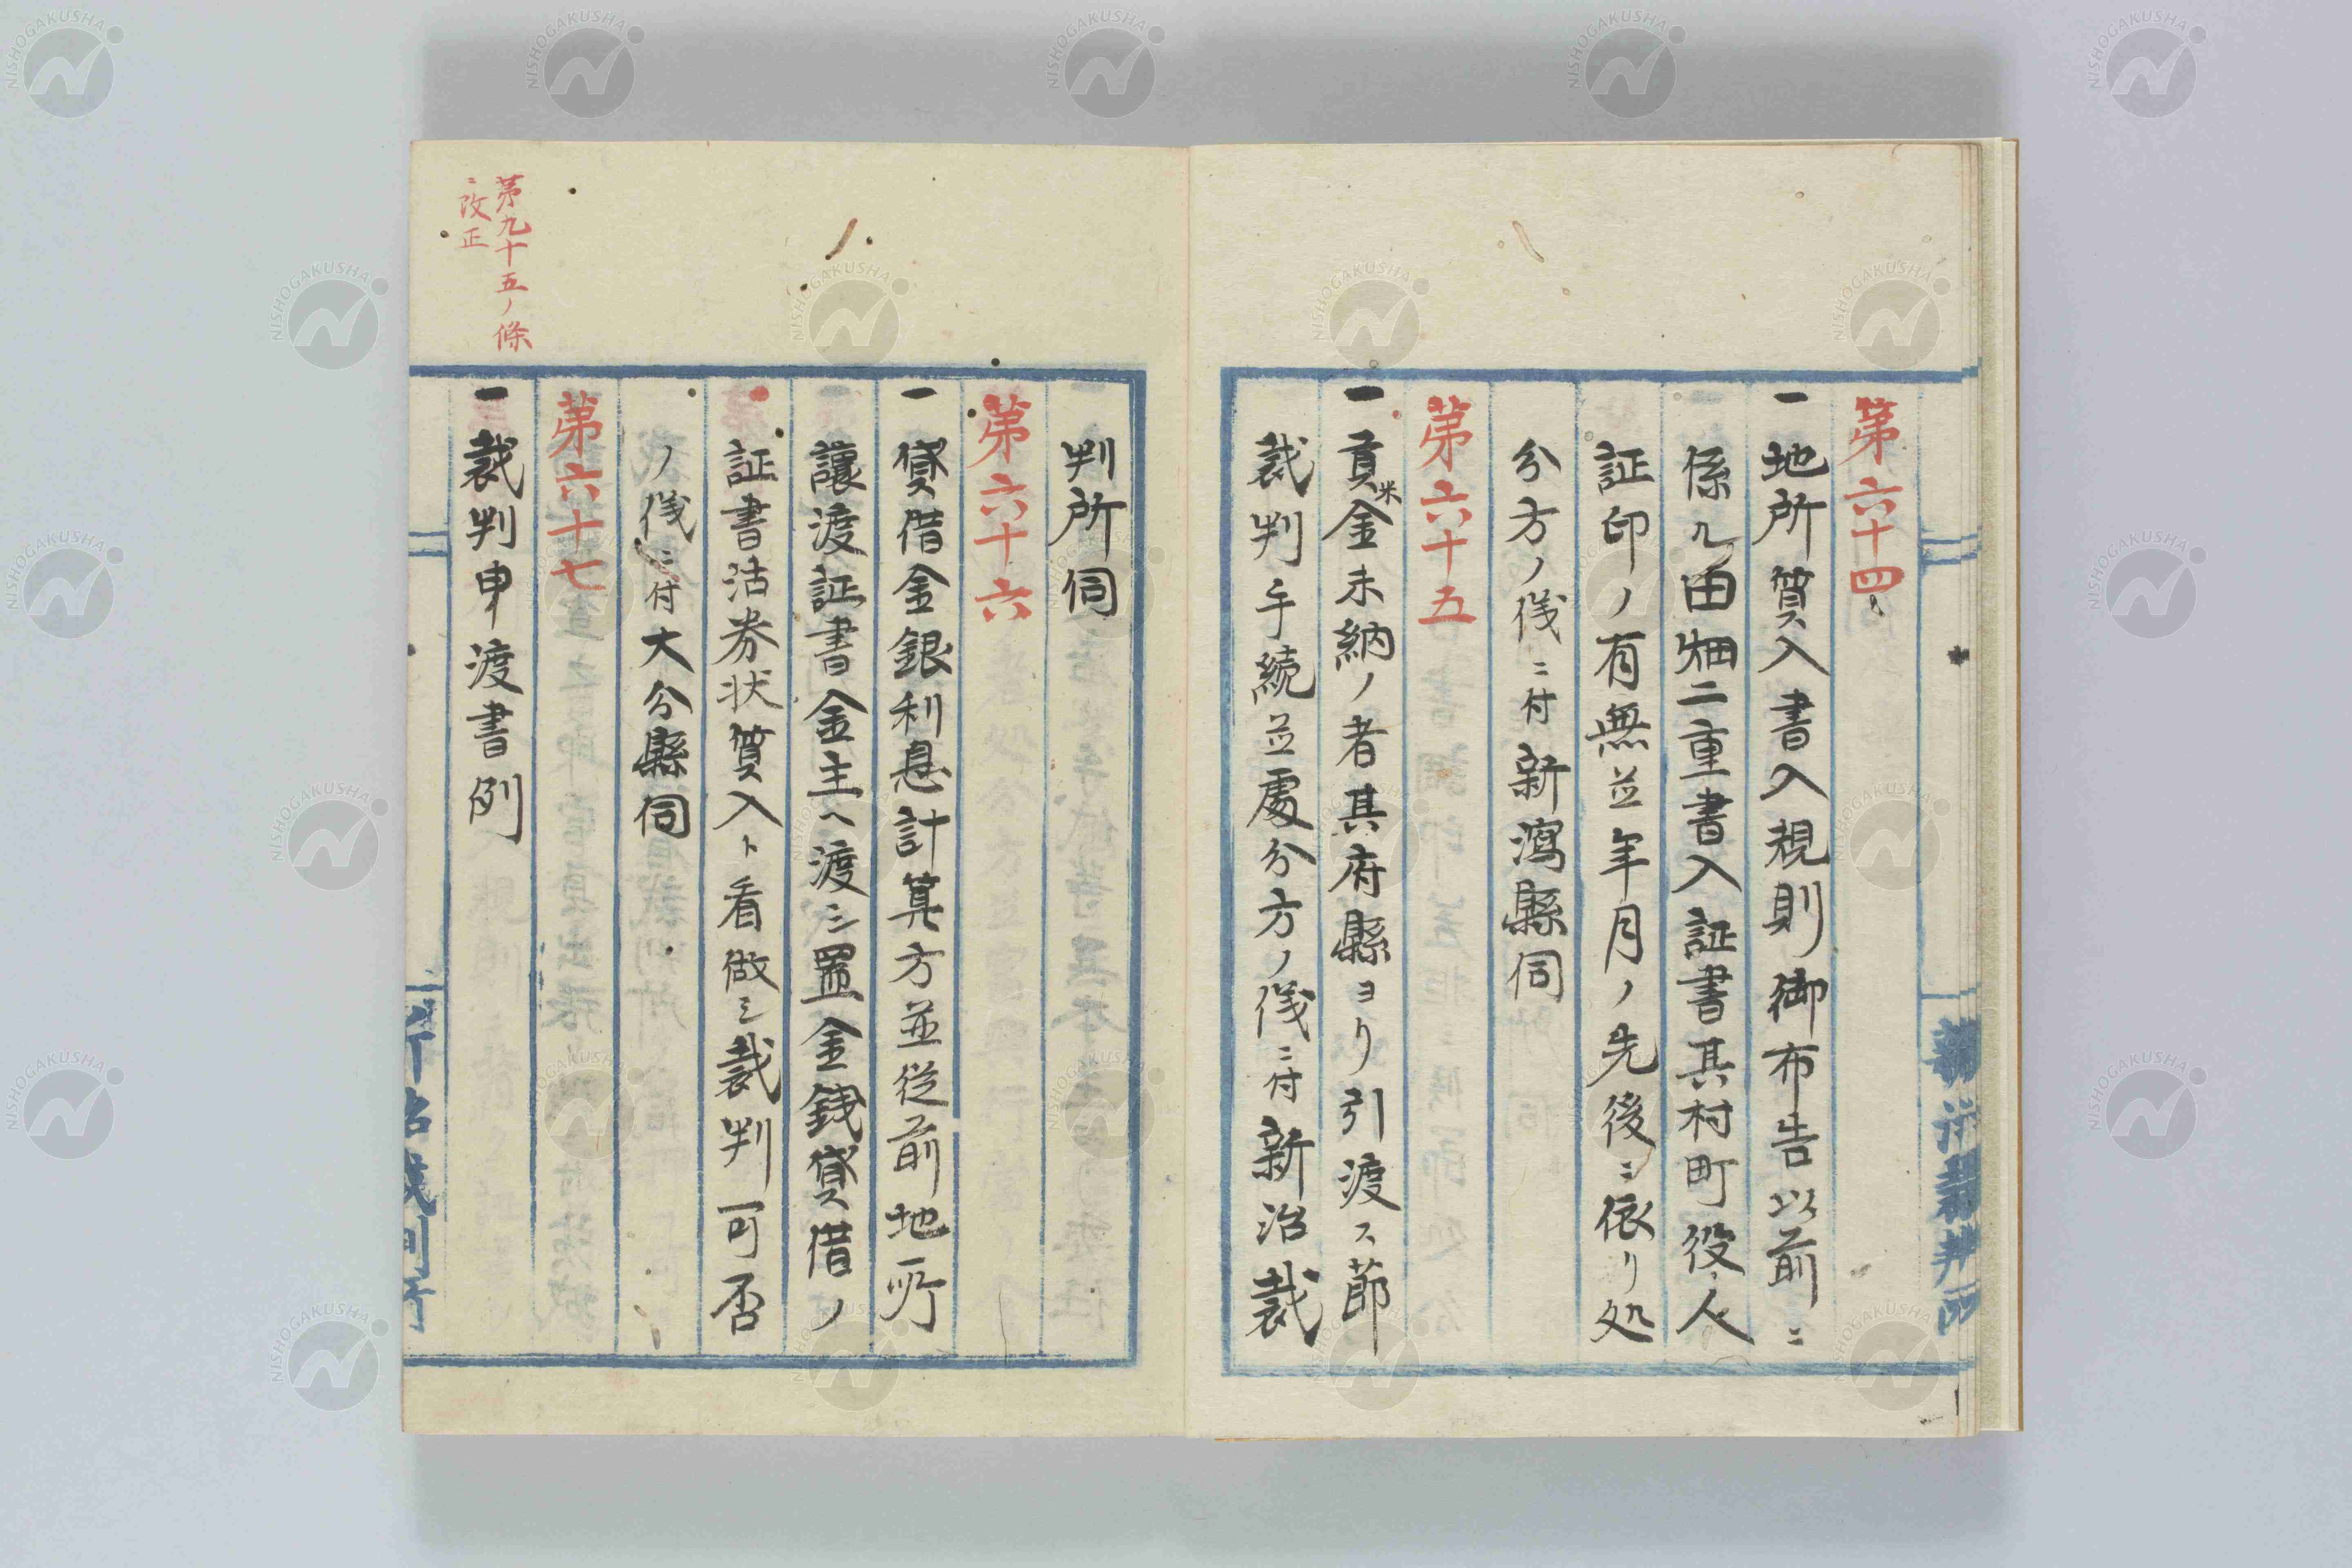 第六十四
一地所質入書入規則御布告以前ニ
係ル田畑二重書入証書其村町役人
証印ノ有無並年月ノ先後ニ依リ処
分方ノ儀ニ付新瀉縣伺
第六十五
一貢米金未納ノ者其府縣ヨリ引渡ス節
裁判手続並處分方ノ儀ニ付新治裁
判所伺
第六十六
一貸借金銀利息計算方並従前地所
譲渡証書金主ヘ渡シ置金銭貸借ノ
証書沽券状質入ト看做シ裁判可否
ノ儀ニ付大分縣伺
第六十七
第九十五ノ條
ニ改正
一裁判申渡書例
新治裁判所
NISHOGAKUSHA